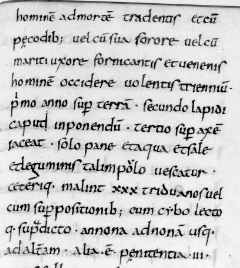 hominē ad mortē tradentis et cū
pęcodib; vel cū sua sorore vel cū
mariti uxore fornicantis et venenis
hominē occidere volentis triennıū.
p̄mo anno sup̄ terrā. secundo lapidi
caput inponendū. tertio sup̄ axē
iaceat. solo pane et aqua et sale
et leguminis tali
vescatur.
ceteri q; malint xxx triduanos vel
cum sup̄positionib; cum cybo lecto
q; sup̄dicto. annona ad nonā usq;
ad altam. alia. ē. penitentia. iii.